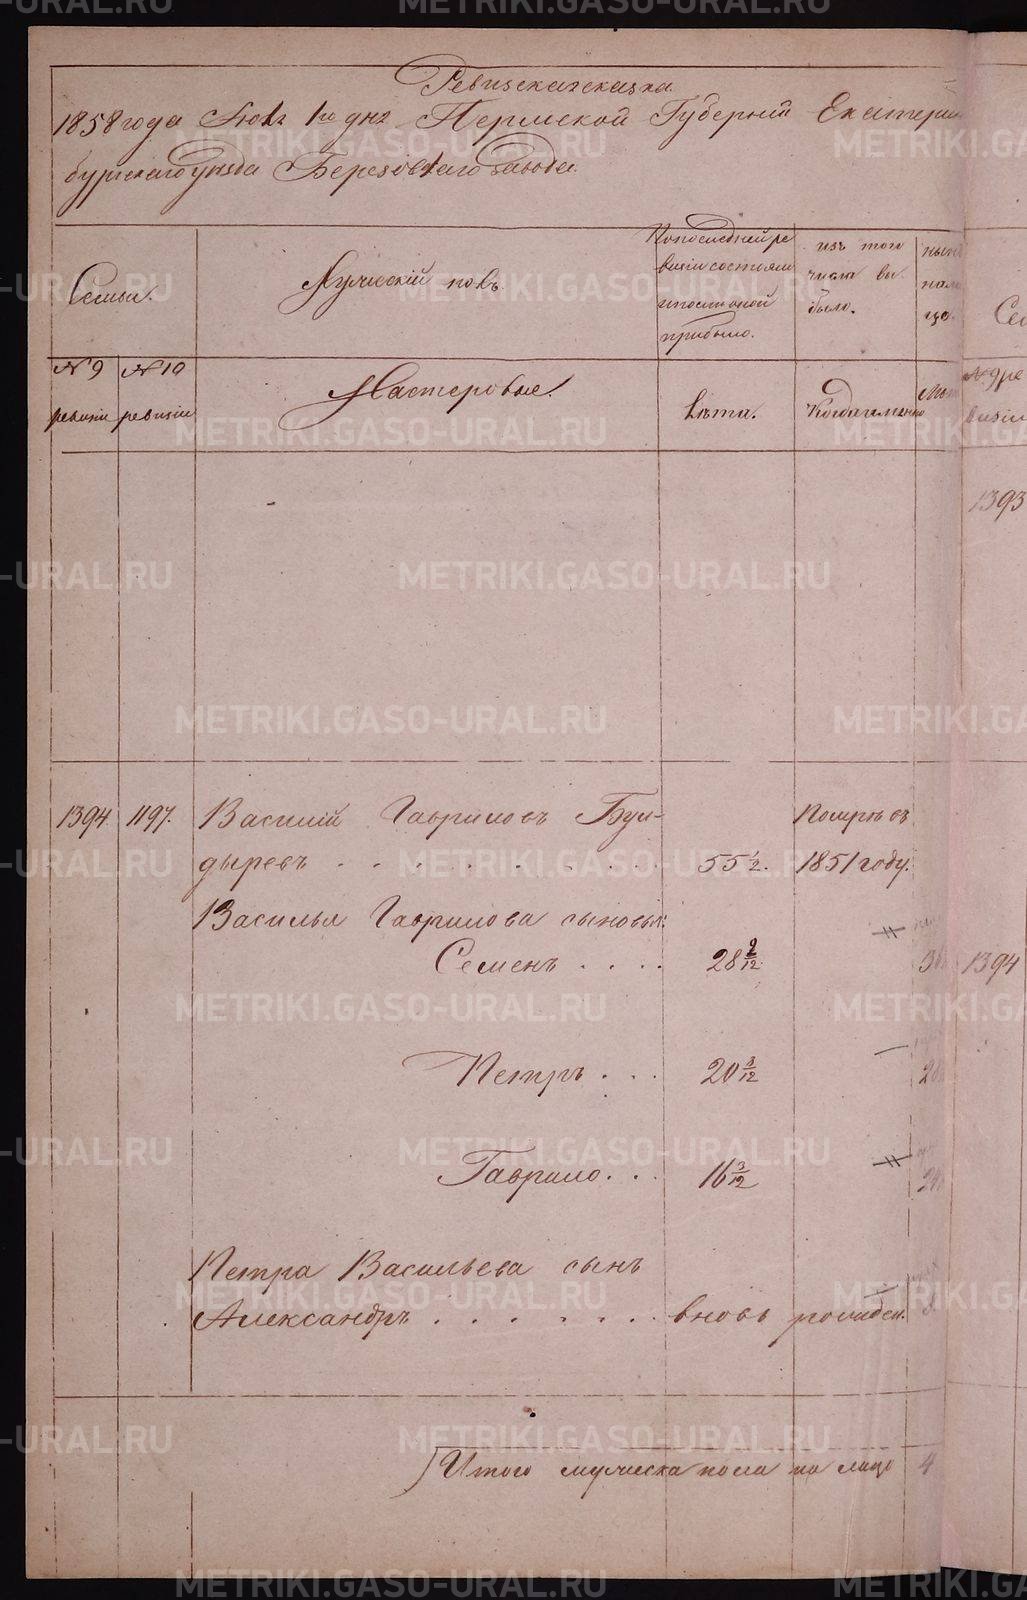 Ревизская сказка
1858 года Июня 1го дня Пермской Губернии Екатерин
бургскаго уѣзда Березовскаго завода.
Семьи.
Мужескій полъ.
По последней ре
визіи состояло
и после оной
прибыло.
изъ того
числа вы
было.
ныне
нали
цо.
№ 9
ревизіи
№ 10
ревизіи
Мастеровые.
Лѣта.
Когда именно
Лѣт
№ 9 ре
визіи
1393
1394 1197. Василій Гавриловъ Бул-
дыревъ . . . . . . . . 55 1/2. Помръ въ 1851 году.
Василья Гаврилова сыновья:
Семенъ . . . . 28 9/12.
1394
Петръ . . . 20 3/12
Гаврило . . . 16 3/12
Петра Васильева сынъ
Александръ . . . . . . . вновь рожден.
Итого мужеска пола на лицо 4
METRIKI.GASO-URAL.RU